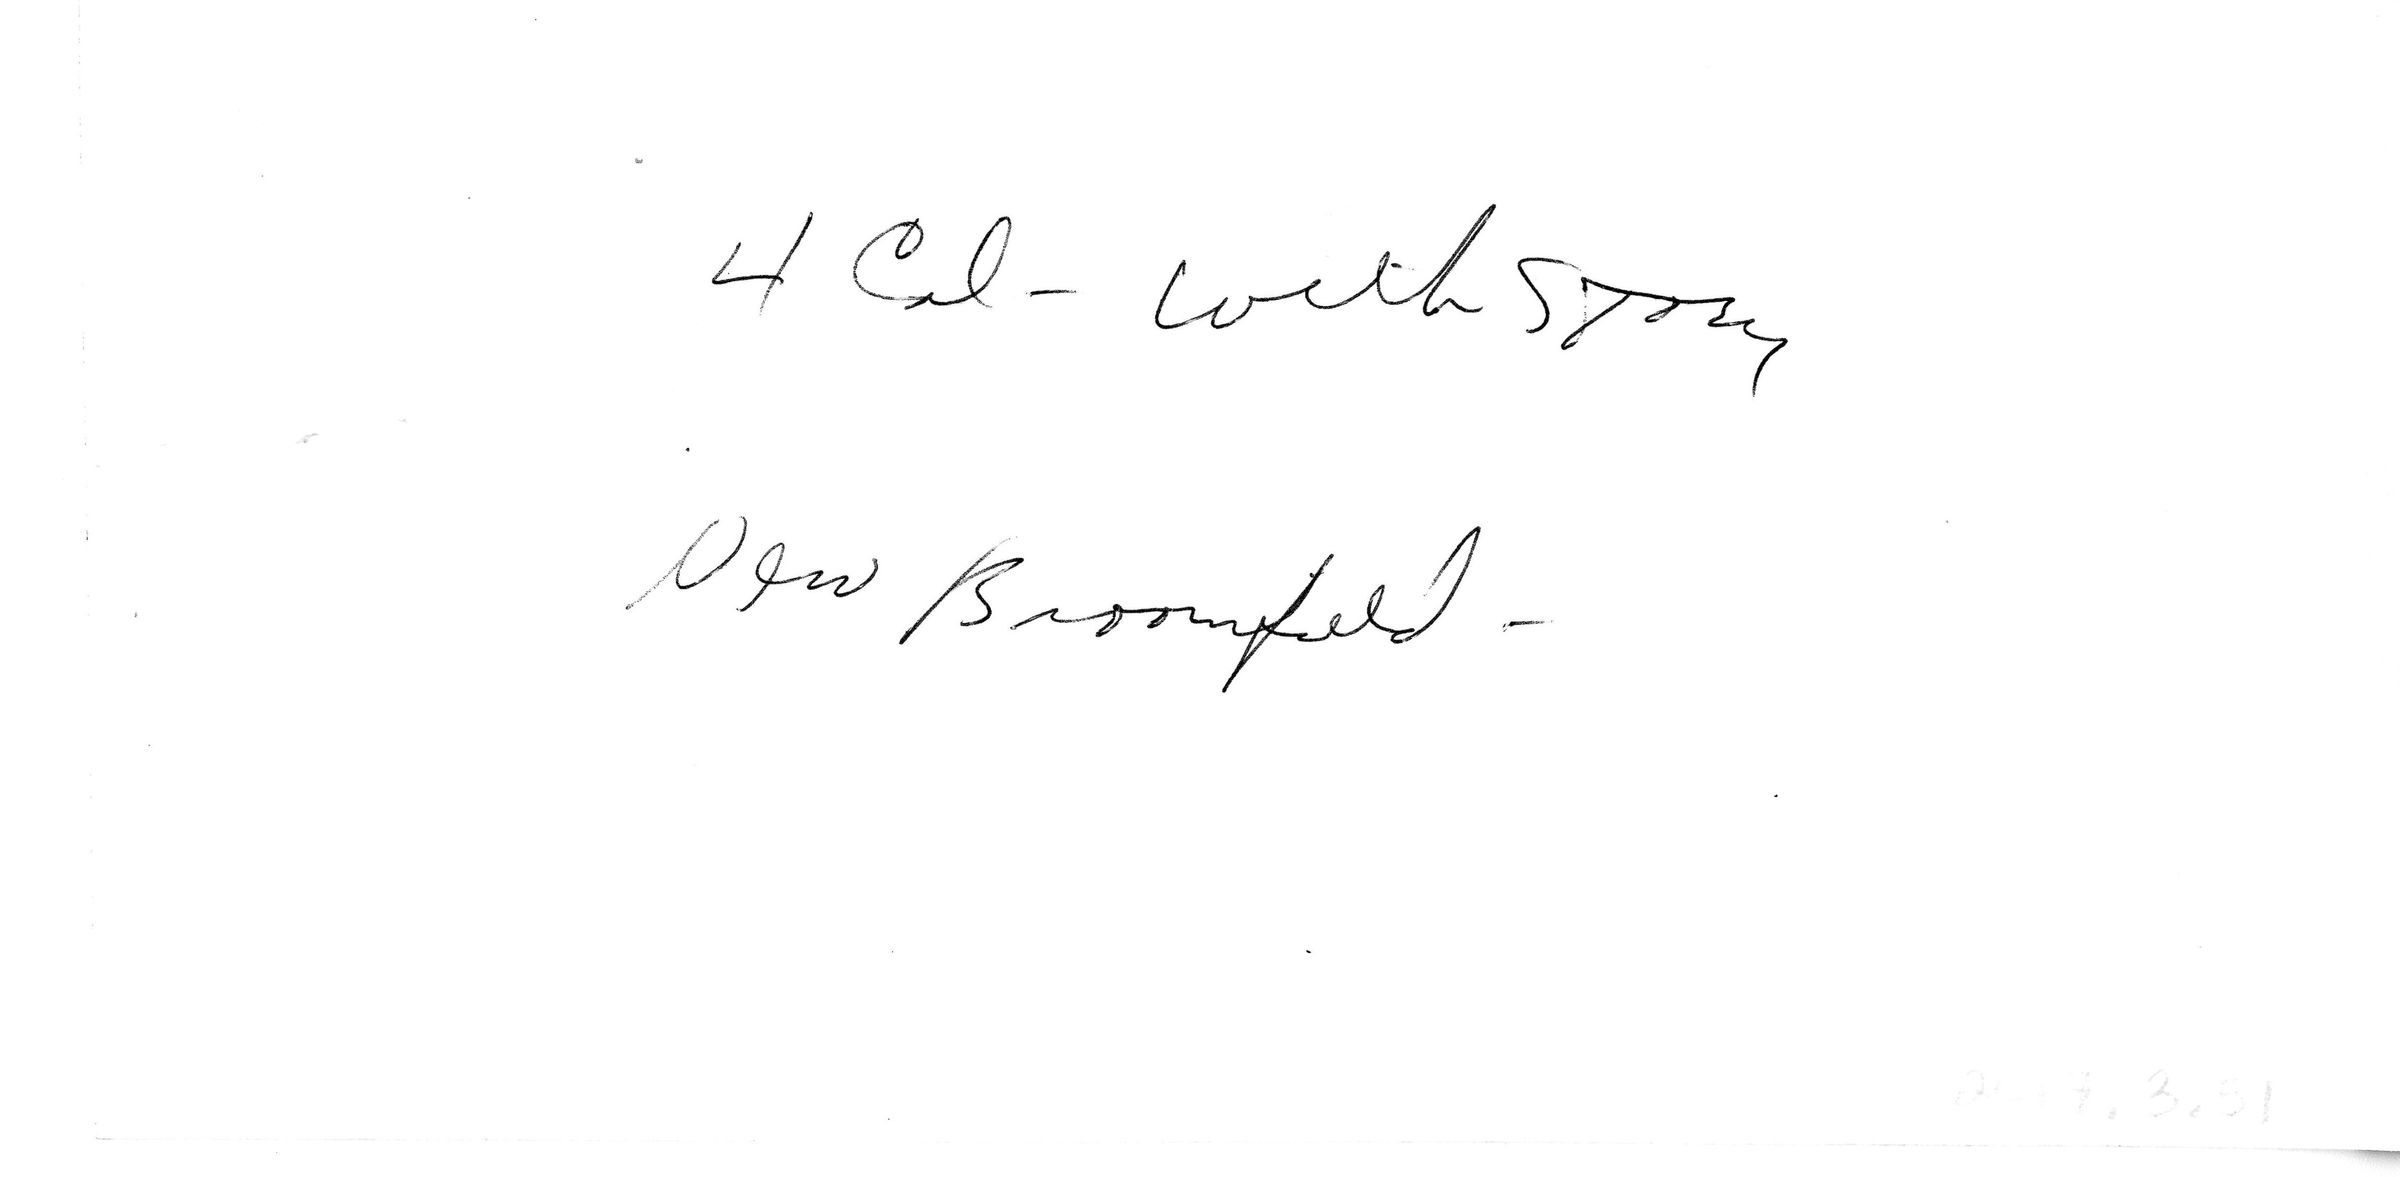 4 Col - with story
New Broomfield -